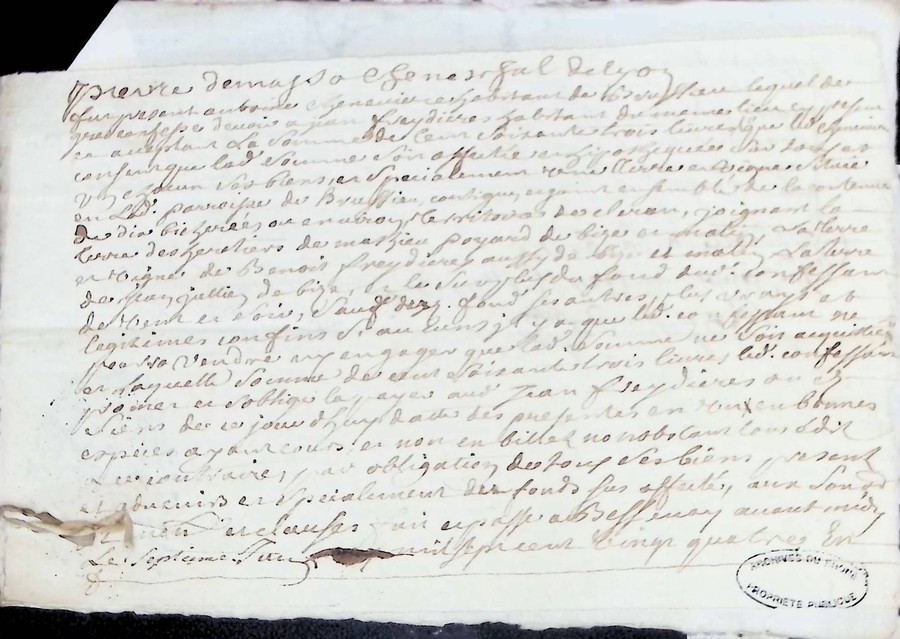 pierre demasso cheneschal delyon
fut present antoine chenevier habitant de Brussieu lequel de
gre confesse devoir a jean freydieres habitant du meme lieu cy present
et acceptant La Somme de Cent soixante trois livres que led. chenevier
consent que lad. Somme Soit affectée en hipotequée sur tous et
un chacun Ses biens, et Specialement Une terre et vigne Scitué
en Lad. parroisse de Brussieu, contigue, et joint ensemble de la contenue
de dix bicherées ou environ, territoire de joignant la
terre des heritiers de mathieu poyard de bize et matin, La terre
et vigne de Benoit freydieres aussy de bize et matin La terre
de jean jullien de bize, et le Surplus du fond dud. confessant
de vent et soir, Sauf desd. fond Ses autres plus vrays et
legitimes confins Si aucuns jl y a, que led. confessant ne
poura vendre ny engager que lad. Somme ne Soit acquittée
et laquelle Somme de cent soixante trois livres led. confessant
promet et s'oblige la payer aud. Jean freydieres ou es
Siens de ce jour d'huy datte des presentes en un en bonnes
especes ayant cours et non en billet nonobstant tous edit
au contraire, par obligation de tous Ses biens present
et advenirs et Specialement des fonds Sus affecté, aux
et clauses fait et passé a Bessenay avant midy
Le Septieme mil Sept cent vingt quatre En
ARCHIVES DU RHONE
PROPRIETE PUBLIQUE